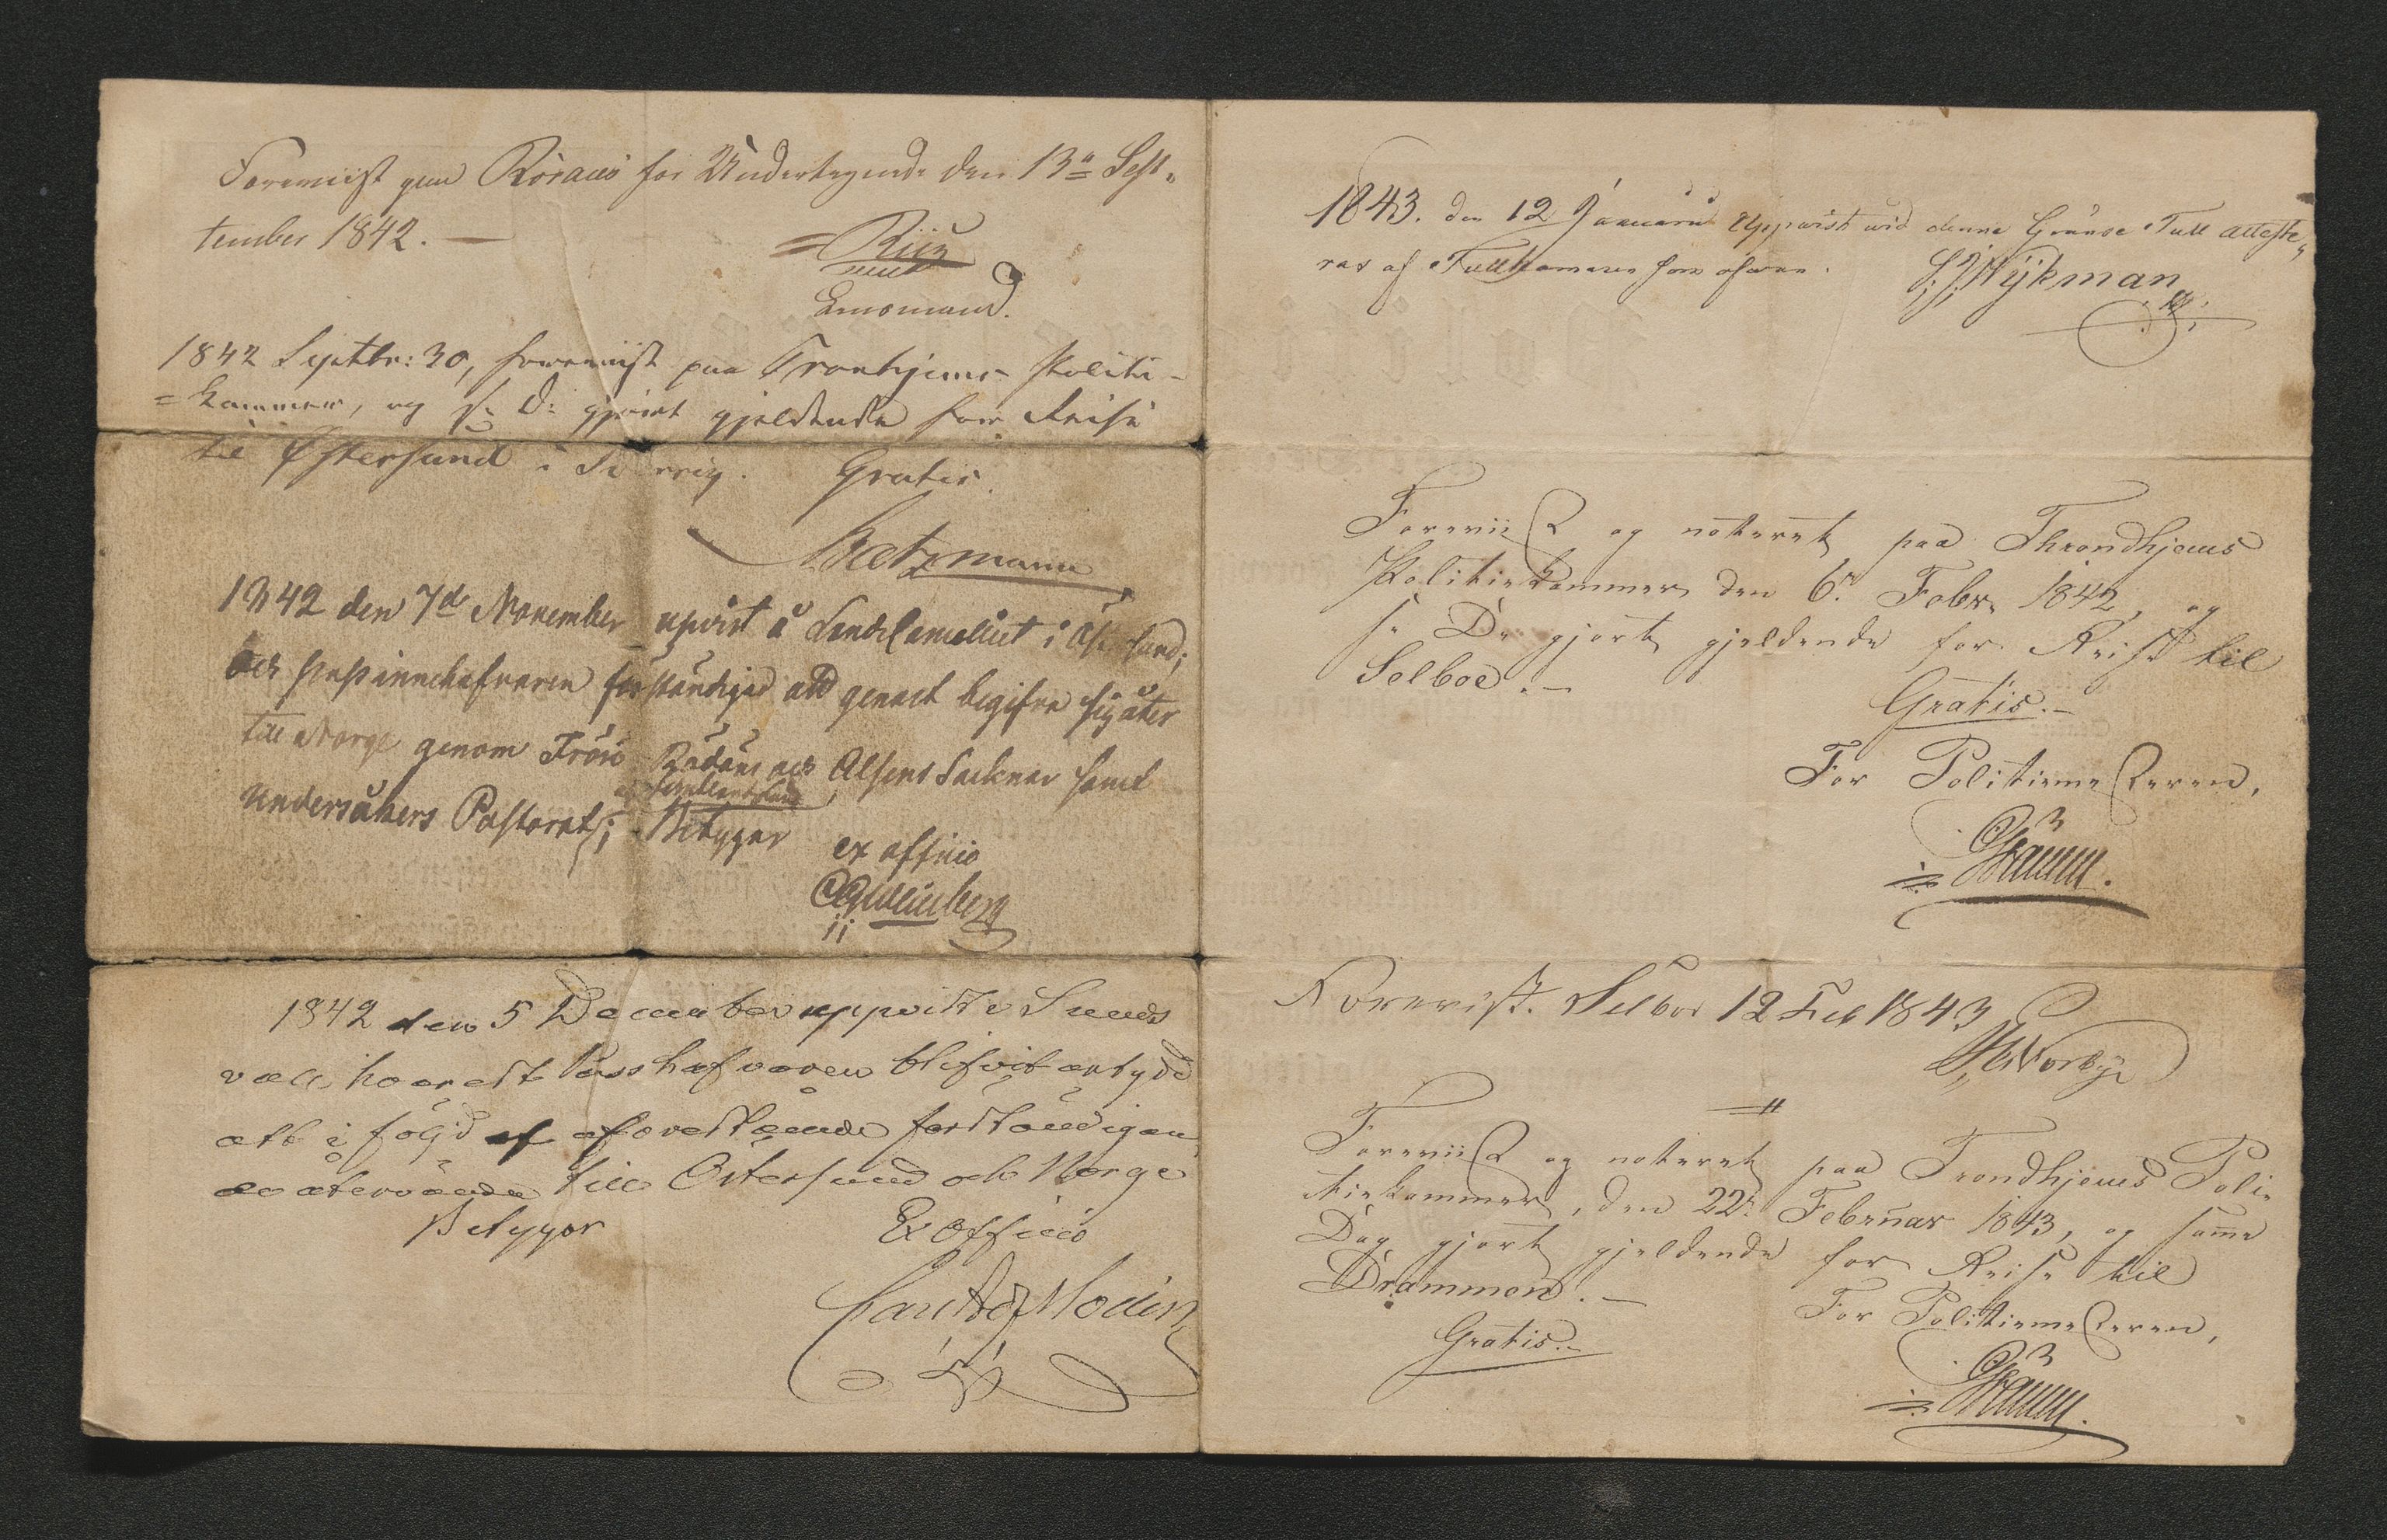 Foreviist paa Röraas for Undertegnede den 13de Sep-
tember 1842. —
Riis
Lensmand.
1842 Septbr: 30, foreviist paa Tronhjems Politi-
=kammer, og s. D: gjort gjeldende for Reise
til Østersund i Sverrig. Gratis.
1842 den 7de November upvist å Landscancelliet i Östersund;
och passinnehafvaren förständigad att genast begifva sig åter
till Norge genom Frösö Rödöns och Alsens Socknar samt
Undersåkers Pastorat; Betygar
ex officio
1842 den 5 December uppvist i Sunds
vall, hvarest Passhafvaren blifvit antydd
att i följd af ofvanstående förständigan
de återvända till Östersund och Norge
Betygar Ex officio
Carl Ad. Modin
1843. den 12 Januarii Uppvist vid denna Gränse Tull atteste-
ras af Tullkamrn som ofvan.
Wykman
Foreviist og noteret paa Throndhjems
Politiekammer den 6te Febr. 1842, og
s. D. gjort gjeldende for Reise til
Selboe. —
Gratis. —
For Politiemesteren,
Foreviist. Selboe 12 Feb 1843
Foreviist og noteret paa Trondhjems Poli-
tiekammer, den 22de Februar 1843, og samme
Dag gjort gjeldende for Reise til
Drammen. —
For Politiemesteren,
Gratis. —